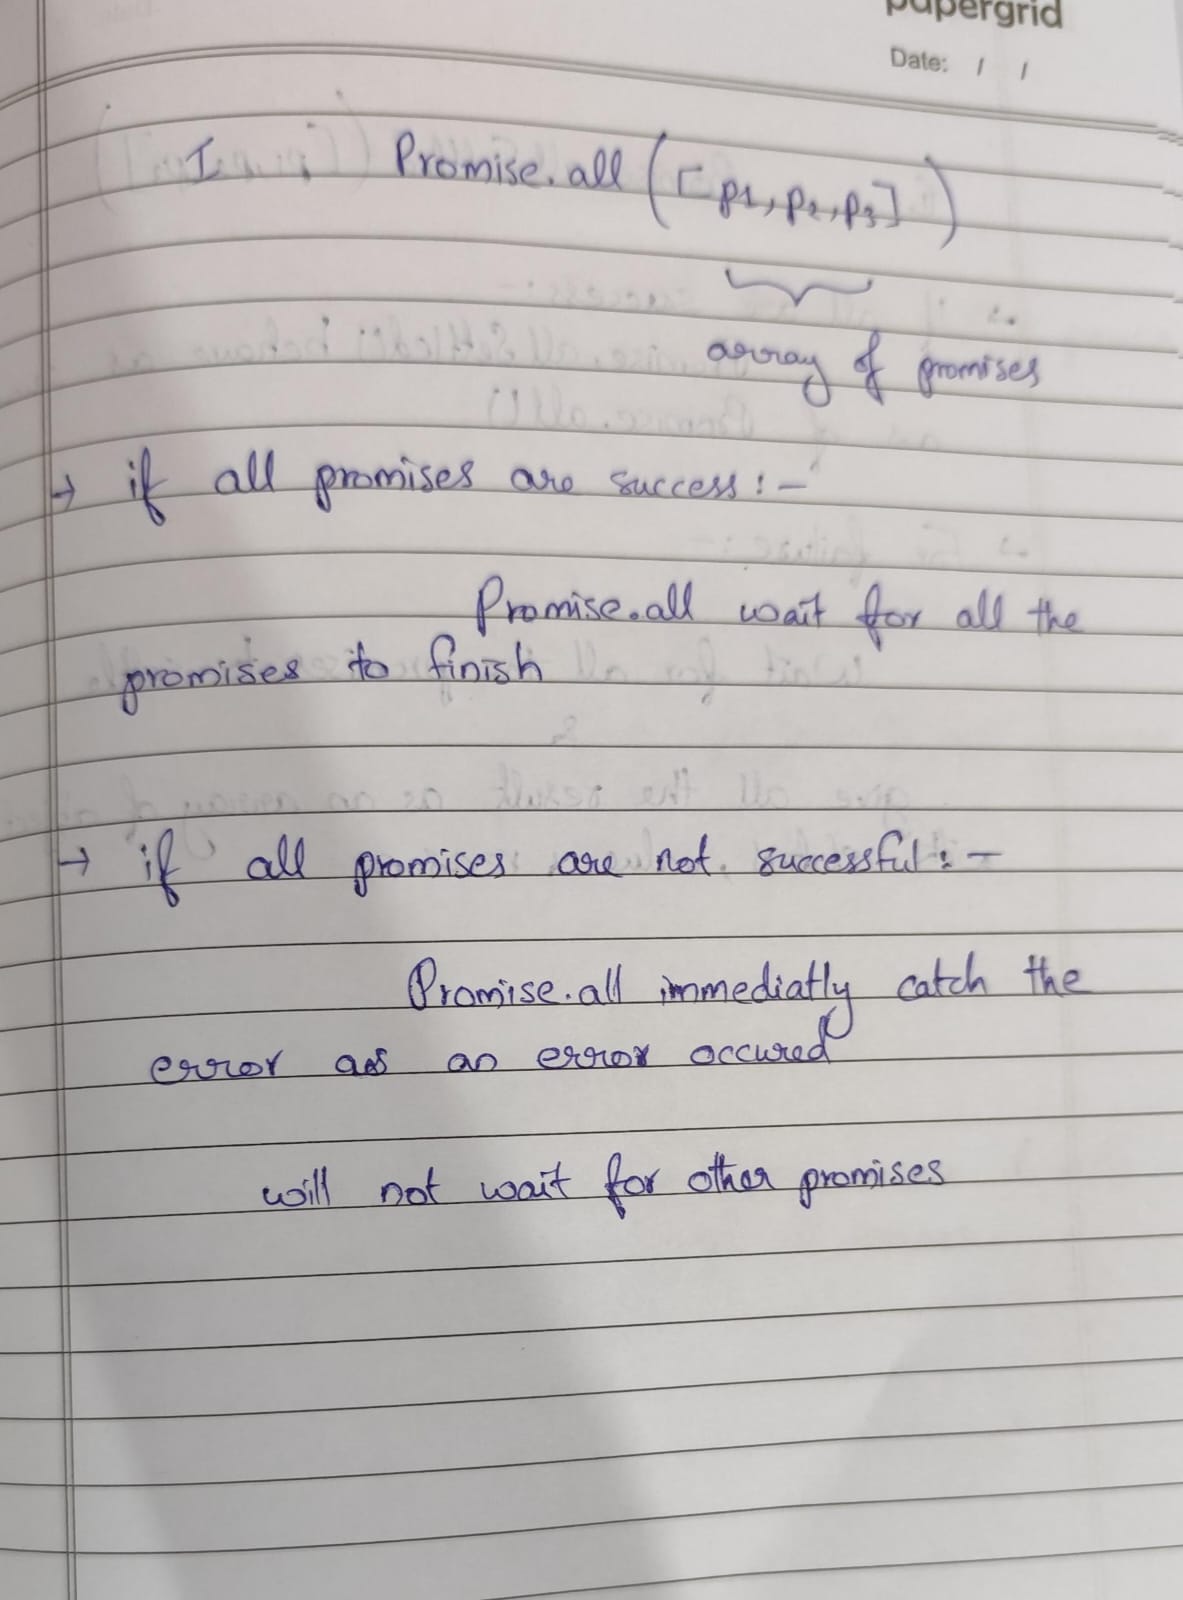 papergrid
Date: / /
I. Promise.all ([p1, p2, p3])
array of promises
→ if all promises are success :-
Promise.all wait for all the
promises to finish
→ if all promises are not successful :-
Promise.all immediatly catch the
error as an error occured
will not wait for other promises